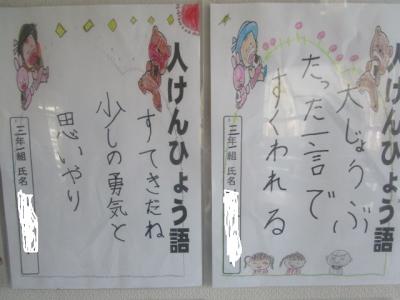 人けんひょう語
すてきだね
少しの勇気と
思いやり
三年一組 氏名
人けんひょう語
大じょうぶ
たった一言で
すくわれる
三年一組 氏名